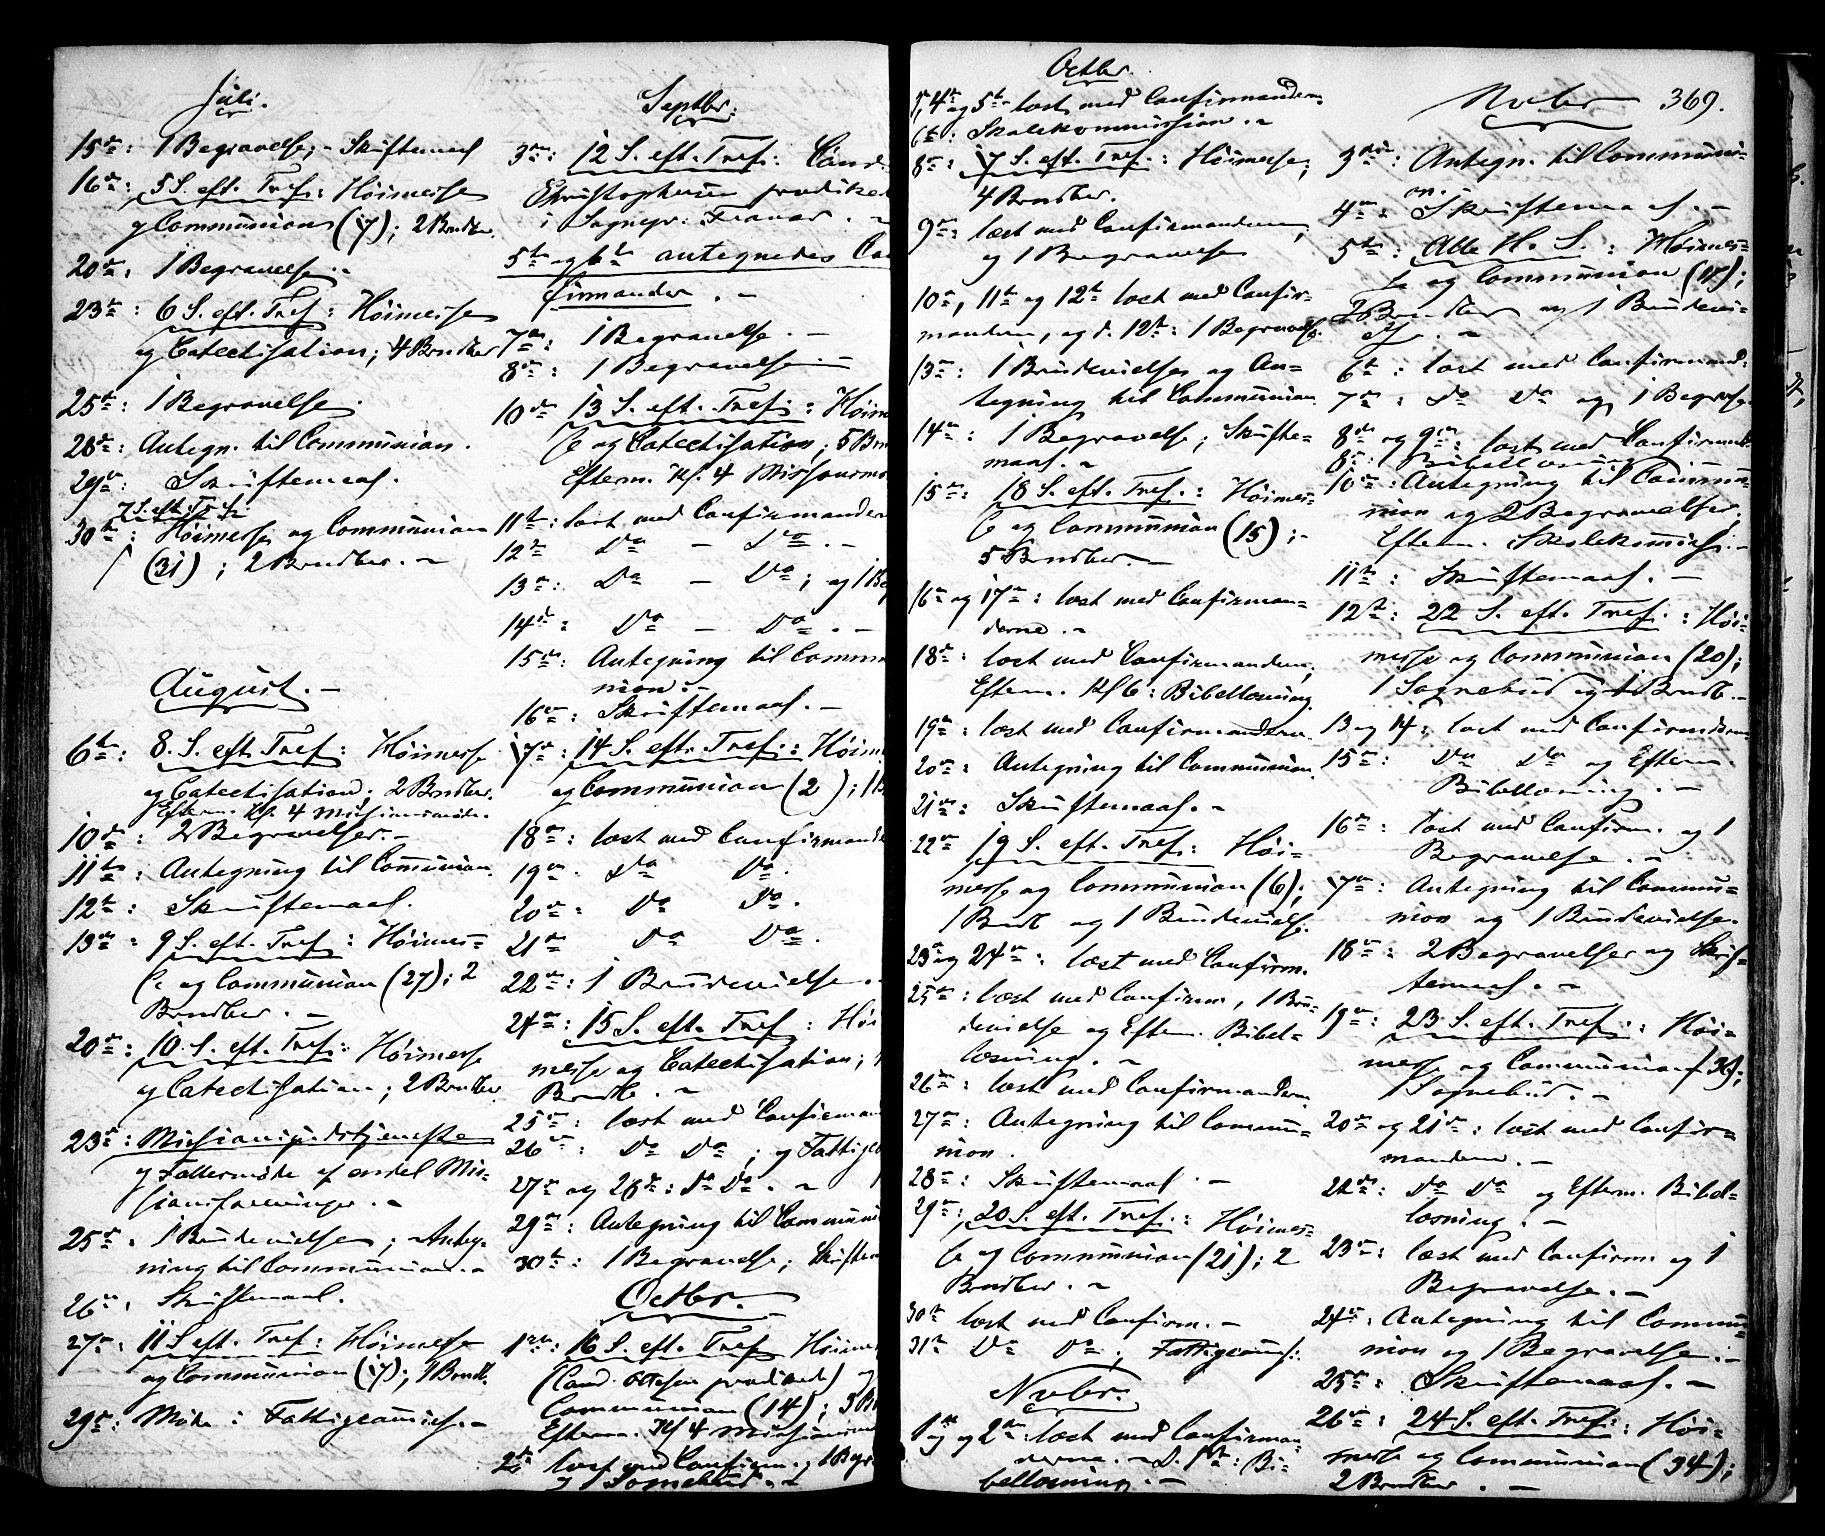 Juli.
15de: 1 Begravelse, - Skriftemaal
16de: 5 S. eft. Tref: Høimesse
og Communion (17); 2 Brndbr.
20de. 1 Begravelse. -
23de: 6 S. eft. Tref: Høimesse
og Catechisation; 4 Brndbr
25de: 1 Begravelse.
28de: Antegn. til Communion.
29de: Skriftemaal.
7 S. eft. Tref:
30te: Høimesse og Communion
(31); 2 Brndbr. -
August. -
6te: 8. S. eft. Tref: Høimesse
og Catechisation. 2 Brndbr.
Efterm. Kl. 4 Missionsmøde.
10de: 2 Begravelser. -
11te: Antegning til Communion.
12te: Skriftemaal.
13de: 9 S. eft. Tref: Høimes=
se og Communion (27); 2
Brndbr. -
20de: 10. S. eft. Tref: Høimesse
og Catechisation; 2 Brndbr.
23de: Missionsgudstjeneste
og Fællesmøde af endel Mis=
sionsforeninger. -
25de. 1 Brudevielse; Anteg=
ning til Communion. -
26de. Skriftemaal.
27de: 11 S. eft. Tref: Høimesse
og Communion (17); 1 Brndb.
29de: Møde i Fattigcommiss. -
Septbr:
3die: 12 S. eft. Tref: Cand
Christophersen prædiket
i Sognepr: Fravær. -
5te og 6te antegnedes Con
firmander. -
7de: 1 Begravelse. -
8de: 1 Begravelse -
10de 13 S. eft. Tref: Høim
se og Catechisation; 5 Brn
Efterm. Kl. 4 Missionsmø
11te: læst med Confirmandern
12te Do - Do. -
13de: Do - Do; og 1 Beg
14de: Do - Do. -
15de: Antegning til Commu
nion. -
16de: Skriftemaal. -
17de: 14 S. eft. Tref.: Høim
og Communion (2); 1 B
18de: læst med Confirmande
19de. Do Do.
20de: Do Do.
21de Do Do.
22de: 1 Brudevielse.
24de: 15 S. eft. Tref: Høi
messe og Catechisation;
Brndb. -
25de: læst med Confirmand
26de: Do Do; og Fattigco
27de og 28de: Do Do. -
29de: Antegning til Communi
30te: 1 Begravelse; Skriftem
Octbr.
1ste: 16 S. eft. Tref Høime
(Cand. Ottesen prædiked) og
Communion (14); 3 B
Efterm. Kl 4 Missionsmø
2de læst med Confirm. og 1 Begr
og 1 Sognebud. -
Octbr.
4de og 5te læst med Confirmandern
6te: Skolekommission. -
8de: 17 S. eft. Tref.: Høimesse;
4 Brndbr.
9de: læst med Confirmanderne,
og 1 Begravelse
10de, 11te og 12te læst med Confir=
manderne, og d. 12te: 1 Begravelse.
13de: 1 Brudevielse og An=
tegning til Communion
14de: 1 Begravelse; Skrifte=
maal. -
15de: 18 S. eft. Tref.: Høimes=
se og Communion (15); -
5 Brndbr. -
16de og 17de: læst med Confirman=
derne. -
18de: læst med Confirmanderne,
Efterm. Kl 6: Bibellæsning.
19de: læst med Confirmanderne.
20de: Antegning til Communion.
21de: Skriftemaal. -
22de 19 S. eft. Tref.: Høi=
messe og Communion (6);
1 Brndb og 1 Brudevielse.
23de og 24de: læst med Confirm.
25de: læst med Confirm, 1 Bru=
devielse og Efterm. Bibel=
læsning. -
26de: læst med Confirmandern.
27de: Antegning til Commu=
nion.
28de: Skriftemaal. -
29de: 20 S. eft. Tref.: Høimes=
se og Communion (21); 2
Brndbr. -
30te læst med Confirm. -
31te Do Do; Fattigcomss:
Nvbr.
1ste og 2den: læst med Confirman=
derne. - D. 1ste: Bi=
bellæsning. -
Nvbr 369.
3die: Antegn. til Communi=
on.
4de: Skriftemaal. -
5te: Alle H. S.: Høimes=
se og Communion (18);
2 Brndbr og 1 Brudevi=
else. -
6te: læst med Confirmand:
7de: Do Do og 1 Begravelse
8de og 9de: læst med Confirmand.
8de: Bibellæsning
10de: Antegning til Commu=
nion og 2 Begravelser,
Efterm. Skolekomiss. -
11te: Skriftemaal. -
12te: 22 S. eft. Tref.: Høi=
messe og Communion (20);
1 Sognebud og 1 Brndb. -
13 og 14: læst med Confirmderne
15de: Do Do og Efterm.
Bibellæsning. -
16de: læst med Confirm. og 1
Begravelse. -
17de: Antegning til Commu=
nion og 1 Brudevielse.
18de: 2 Begravelser og Skrif=
temaal. -
19de: 23 S. eft. Tref.: Høi=
messe og Communion (36);
1 Sognebud. -
20de og 21de: læst med Confir=
manderne. -
22de: Do Do og Efterm. Bibel=
læsning. -
23de: læst med Confirm. og 1
Begravelse. -
24de: Antegning til Commu=
nion og 1 Begravelse. -
25de: Skriftemaal. -
26de: 24 S. eft. Tref.: Høi=
messe og Communion (34);
2 Brndbr. -